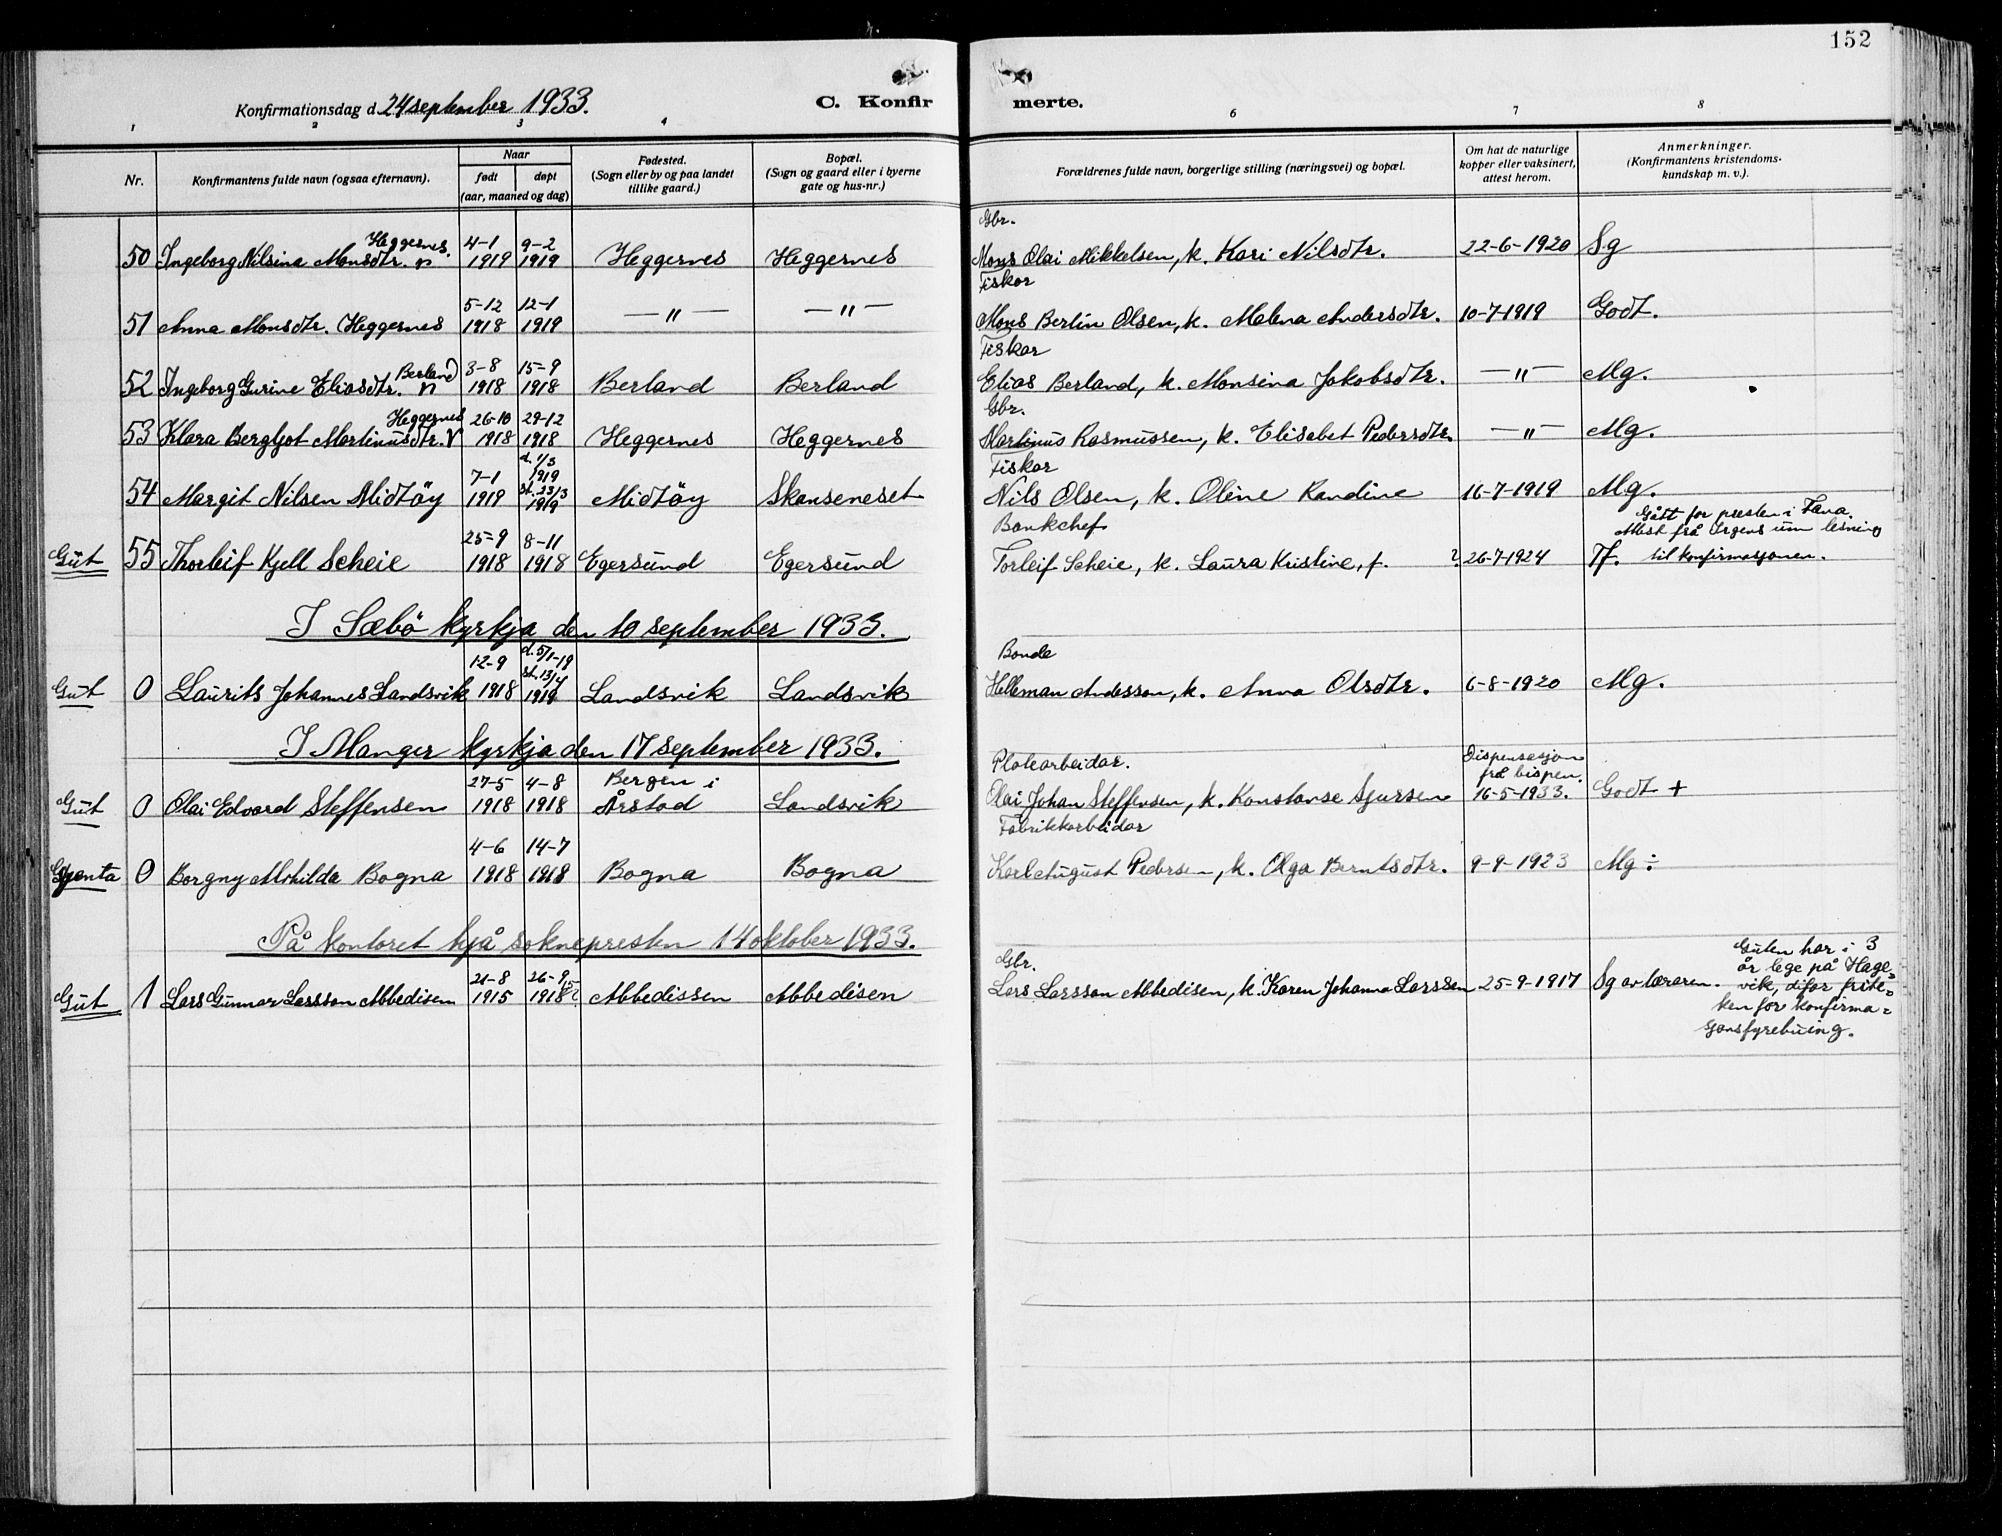 152
Konfirmationsdag d. 24 september 1933.
C. Konfirmerte.
1 2 3 4 6 7 8
Nr. Konfirmantens fulde navn (ogsaa efternavn). Naar født døpt (aar, maaned og dag) Fødested. (Sogn eller by og paa landet tillike gaard.) Bopæl. (Sogn og gaard eller i byerne gate og hus-nr.) Forældrenes fulde navn, borgerlige stilling (næringsvei) og bopæl. Om hat de naturlige kopper eller vaksinert, attest herom. Anmerkninger. (Konfirmantens kristendomskundskap m. v.).
50 Ingeborg Nilsina Monsdtr. Heggernes. 4-1 1919 9-2 1919 Heggernes Heggernes Gbr. Mons Olai Mikkelsen, k. Kari Nilsdtr. 22-6-1920 Sg
51 Anna Monsdtr. Heggernes 5-12 1918 12-1 1919 — " — — " — Fiskar Mons Berlin Olsen, k. Malena Andersdtr. 10-7-1919 Godt.
52 Ingeborg Gurine Eliasdtr. Berland 3-8 1918 15-9 1918 Berland Berland Fiskar Elias Berland, k. Monsina Jakobsdtr. — " — Mg.
53 Klara Bergljot Martinusdtr. Heggernes 26-10 1918 29-12 1918 Heggernes Heggernes Gbr. Martinus Rasmussen, k. Elisabet Pedersdtr. — " — Mg.
54 Margit Nilsen Midtöy 7-1 1919 d. 1/3 1919 st. 23/3 1919 Midtöy Skanseneset Fiskar Nils Olsen, k. Oline Randine 16-7-1919 Mg.
Gut 55 Thorleif Kjell Scheie 25-9 1918 8-11 1918 Egersund Egersund Bankchef Torleif Scheie, k. Laura Kristine, f. ? 26-7-1924 Tf. Gått for presten i Fana. Attest frå Ørgens um lesning til konfirmasjonen.
I Sæbö kyrkja den 10 september 1933.
Gut 0 Laurits Johannes Landsvik 12-9 1918 d. 5/1-19 st. 13/4 1919 Landsvik Landsvik Bonde Helleman Andersson, k. Anna Olsdtr. 6-8-1920 Mg.
I Manger kyrkja den 17 september 1933.
Gut 0 Olai Edvard Steffensen 27-5 1918 4-8 1918 Bergen i Årstad Landsvik Platearbeidar. Olai Johan Steffensen, k. Konstanse Sjursen Dispensasjon frå bispen. 16-5-1933. Godt +
Gjenta 0 Borgny Mathilda Bogna 4-6 1918 14-7 1918 Bogna Bogna Fabrikkarbeidar Karl August Pedersen, k. Olga Berntsdtr. 9-9-1923 Mg ÷
På kontoret hjå soknepresten 14 oktober 1933.
Gut 1 Lars Gunnar Larsson Abbedisen 21-8 1915 26-9 1918 Abbedissen Abbedisen Gbr. Lars Larsson Abbedisen, k. Karen Johanna Larssen 25-9-1917 Sg av læraren. Guten har i 3
år lege på Hage-
vik, difor frite-
ken for konfirma-
sjonsfyrebuing.